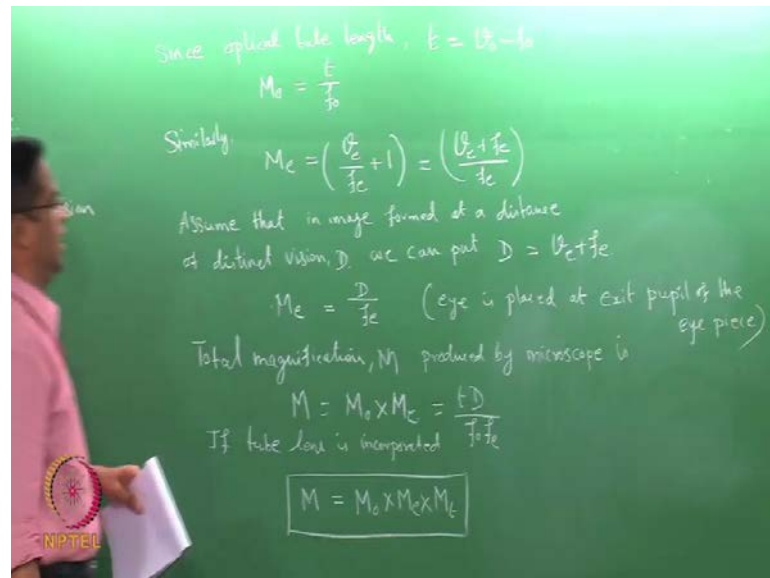 Since optical tube length, t = v₀ - f₀
M₀ = t/f₀
Similarly. Mₑ = (vₑ/fₑ + 1) = ((vₑ + fₑ)/fₑ)
Assume that in image formed at a distance
of distinct vision, D. we can put D = vₑ + fₑ
Mₑ = D/fₑ (eye is placed at exit pupil of the
eye piece)
Total magnification, M produced by microscope is
M = M₀ × Mₑ = tD/f₀fₑ
If tube lens is incorporated
M = M₀ × Mₑ × Mₜ
NPTEL